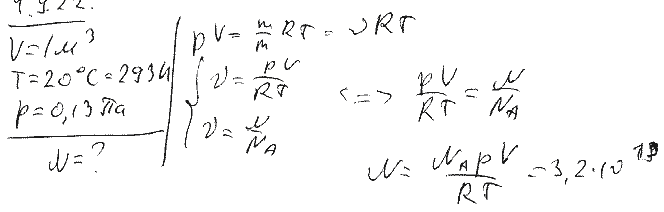 V=1м³
T=20°C=293К
p=0,13Па
N=?
pV=m/m RT=νRT
ν=pV/RT
ν=N/N_A
<=> pV/RT=N/N_A
N=N_A pV/RT=3,2·10